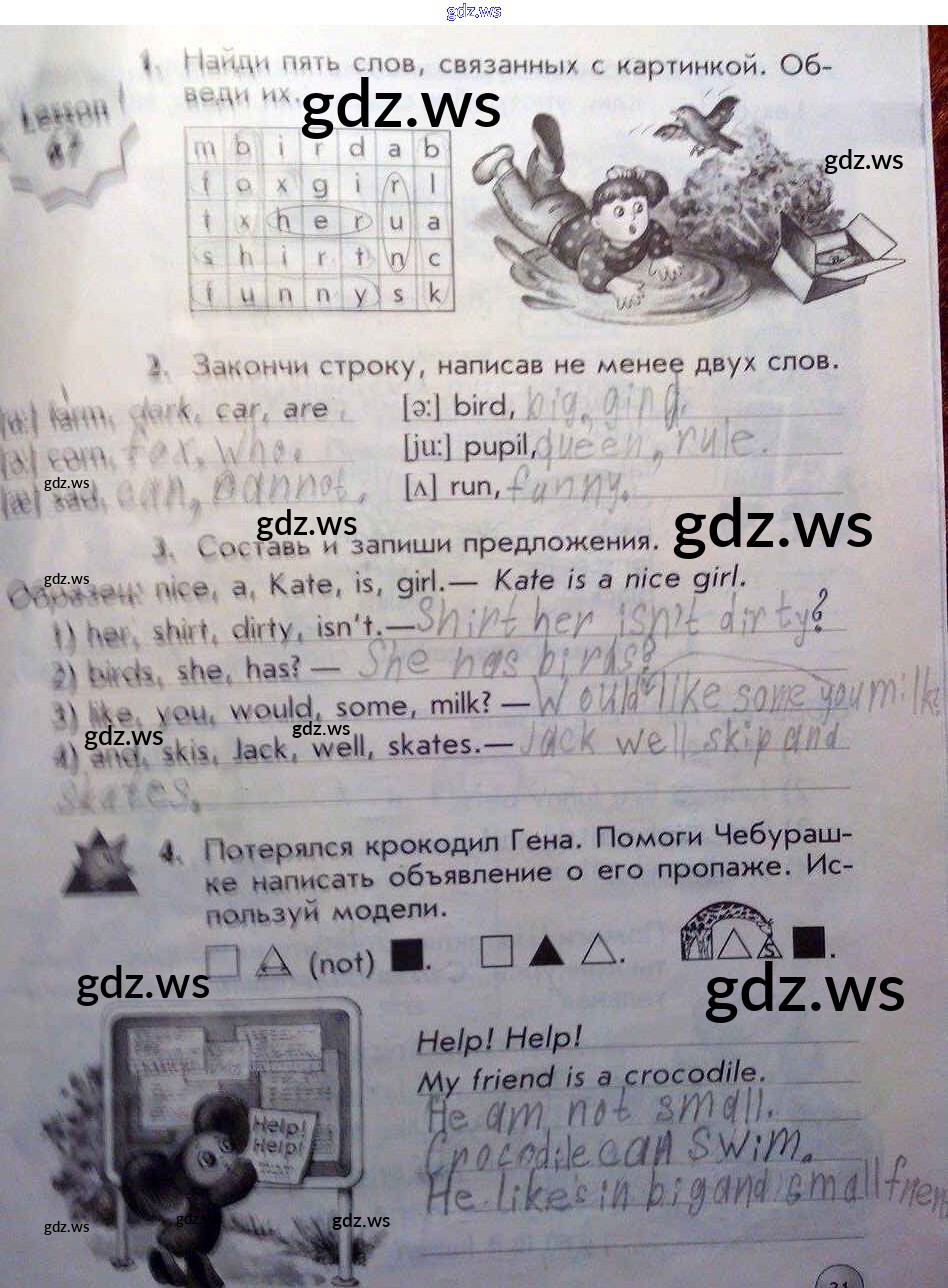 gdz.ws
1. Найди пять слов, связанных с картинкой. Об-
веди их.
gdz.ws
Lesson
gdz.ws
m b i r d a b
f o x g i r l
t x h e r u a
s h i r t n c
f u n n y s k
2. Закончи строку, написав не менее двух слов.
[ɑ:] farm, dark, car, are.
[ə:] bird, big,
[ɔ:] corn, fox, Who.
[ju:] pupil, queen, rule.
[æ] sad, can, cannot.
[ʌ] run, funny.
gdz.ws
gdz.ws
gdz.ws
3. Составь и запиши предложения.
gdz.ws
Образец: nice, a, Kate, is, girl.— Kate is a nice girl.
1) her, shirt, dirty, isn't.— Shirt her isn't dirty?
2) birds, she, has? — She has birds?
3) like, you, would, some, milk? — Would like some you milk?
4) and, skis, Jack, well, skates.— Jack well skip and
skates.
gdz.ws
gdz.ws
4. Потерялся крокодил Гена. Помоги Чебураш-
ке написать объявление о его пропаже. Ис-
пользуй модели.
(not) . . S .
gdz.ws
gdz.ws
Help! Help!
My friend is a crocodile.
He am not small.
Crocodile can swim.
He likes in big and small friend
Help!
Help!
gdz.ws
gdz.ws
gdz.ws
31